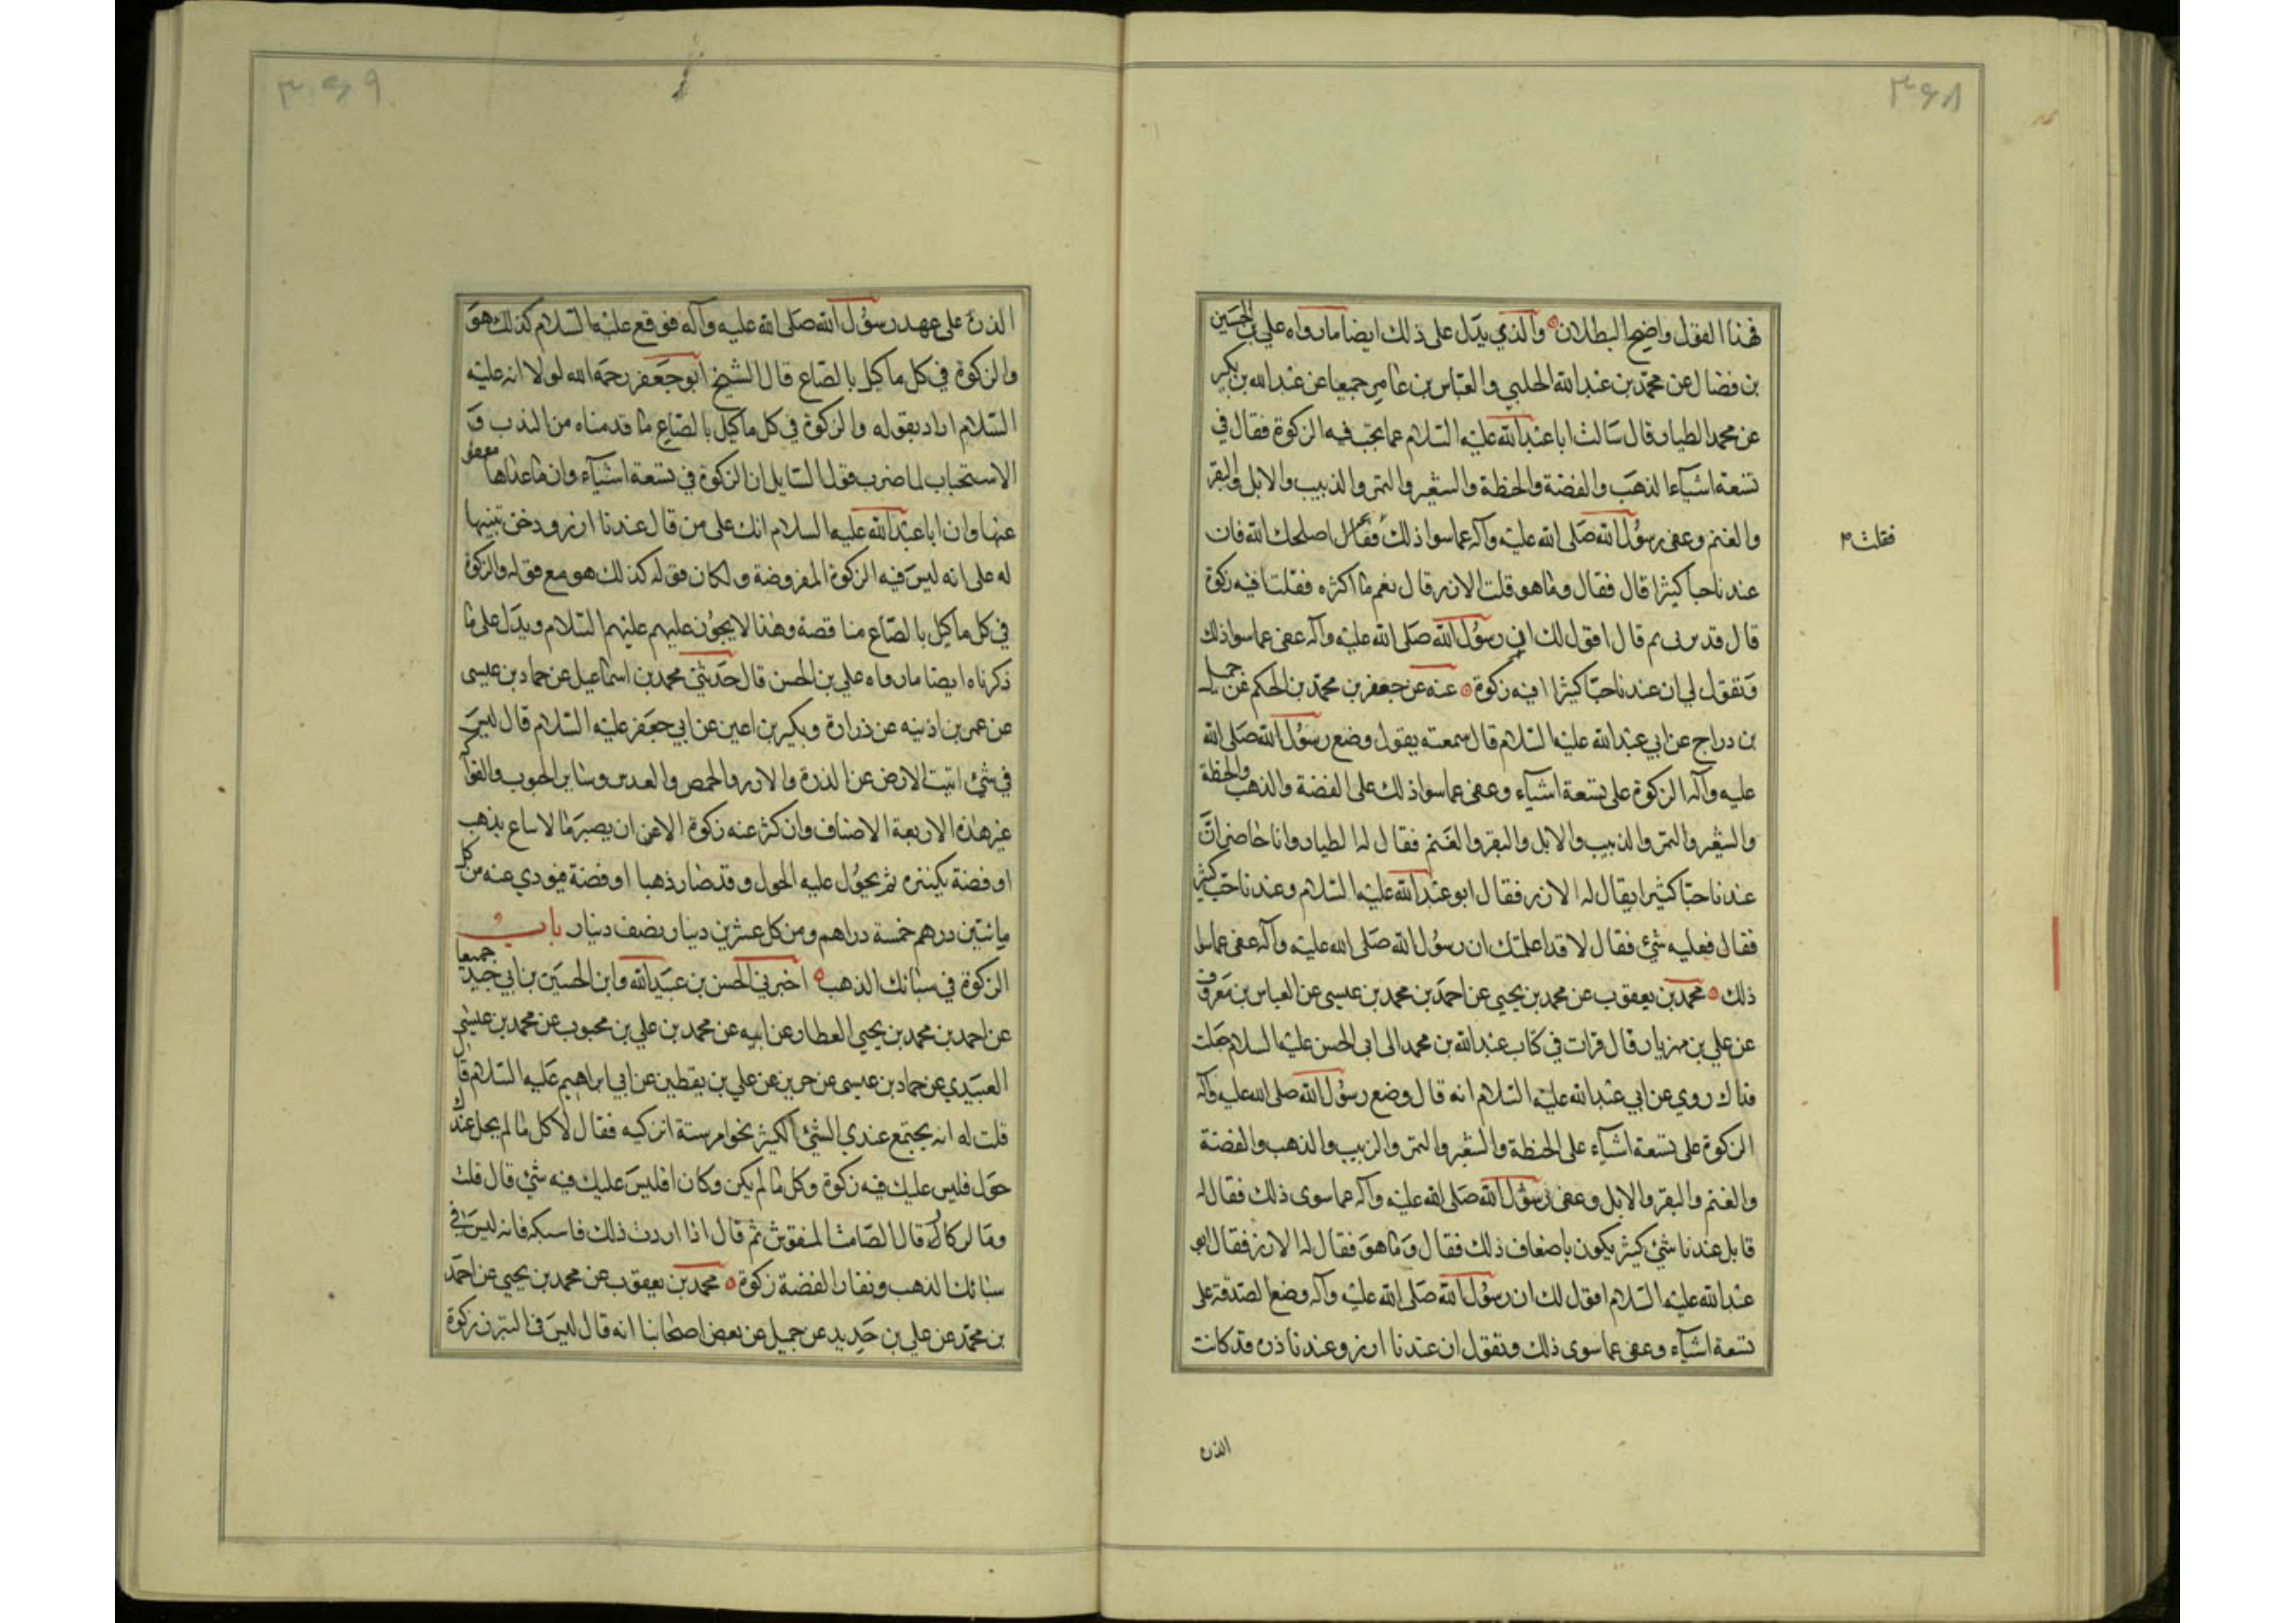 ۳۶۸
فهذا القول واضح البطلان والذي يدل على ذلك ايضا ما رواه علي بن الحسين
بن فضال عن محمد بن عبدالله الحلبي والعباس بن عامر جميعا عن عبدالله بن بكير
عن محمد الطيار قال سالت ابا عبدالله عليه السلام عما يجب فيه الزكوة فقال في
تسعة اشياء الذهب والفضة والحنطة والشعير والتمر والذبيب والابل والبقر
والغنم وعفى رسول الله صلى الله عليه وآله عما سوا ذلك فقال اصلحك الله فان
فقلت م
عندنا حبا كثيرا قال فقال وما هو قلت الارز قال نعم ما اكثره فقلت افيه زكوة
قال قد بربى ثم قال اقول لك ان رسول الله صلى الله عليه وآله عفى عما سوا ذلك
وتقول لي ان عندنا حبا كثيرا افيه زكوة عنه عن جعفر بن محمد بن الحكم عن جميل
بن دراج عن ابي عبدالله عليه السلام قال سمعته يقول وضع رسول الله صلى الله
عليه وآله الزكوة على تسعة اشياء وعفى عما سوا ذلك على الفضة والذهب والحنطة
والشعير والتمر والذبيب والابل والبقر والغنم فقال له الطيار وانا حاضر ان
عندنا حبا كثيرا يقال له الارز فقال ابو عبدالله عليه السلام وعندنا حب كثير
فقال فعليه شئ فقال لا قد اعلمتك ان رسول الله صلى الله عليه وآله عفى عما سوا
ذلك محمد بن يعقوب عن محمد بن يحيى عن احمد بن محمد بن عيسى عن العباس بن معروف
عن علي بن مهزيار قال قرات في كتاب عبدالله بن محمد الى ابي الحسن عليه السلام جعلت
فداك روي عن ابي عبدالله عليه السلام انه قال وضع رسول الله صلى الله عليه وآله
الزكوة على تسعة اشياء على الحنطة والشعير والتمر والزبيب والذهب والفضة
والغنم والبقر والابل وعفى رسول الله صلى الله عليه وآله عما سوى ذلك فقال له
قايل عندنا شئ كثير يكون باضعاف ذلك فقال وما هو فقال له الارز فقال ابو
عبدالله عليه السلام اقول لك ان رسول الله صلى الله عليه وآله وضع الصدقة على
تسعة اشياء وعفى عما سوى ذلك وتقول ان عندنا ارز وعندنا ذره قد كانت
الذره
۳۶۹
الذرة على عهد رسول الله صلى الله عليه وآله فوقع عليه السلام كذلك هو
والزكوة في كل ما كيل بالصاع قال الشيخ ابو جعفر رحمه الله لولا انه عليه
السلام اراد بقوله والزكوة في كل ما كيل بالصاع ما قدمناه من الندب و
الاستحباب لما ضرب قول السايل ان الزكوة في تسعة اشياء وان ما عداها معفو
عنها وان ابا عبدالله عليه السلام انك على من قال عندنا ارز ودخن تنبيها
له على انه ليس فيه الزكوة المفروضة ولكان قوله كذلك هو مع قوله والزكوة
في كل ما كيل بالصاع مناقصة وهذا لا يجوز عليهم عليهم السلام ويدل على ما
ذكرناه ايضا ما رواه علي بن الحسن قال حدثني محمد بن اسماعيل عن حماد بن عيسى
عن عمر بن اذينه عن ذرارة وبكير بن اعين عن ابي جعفر عليه السلام قال ليس
في شئ انبت الارض عن الذرة والارز والحمص والعدس وساير الحبوب والفواكه
غير هذه الاربعة الاصناف وان كثر عنه زكوة الا عن ان يصير مالا ساع بذهب
او فضة يكنزه ثم يحول عليه الحول وقد صار ذهبا او فضة فيودي عنه من كل
مائتين درهم خمسة دراهم ومن كل عشرين دينار نصف دينار باب
الزكوة في سبائك الذهب اخبرني الحسن بن عبيدالله وابن الحسين بن ابي جيد جميعا
عن احمد بن محمد بن يحيى العطار عن ابيه عن محمد بن علي بن محبوب عن محمد بن عيسى
العبيدي عن حماد بن عيسى عن حريز عن علي بن يقطين عن ابي ابراهيم عليه السلام قال
قلت له انه يجتمع عندي الشئ الكثير نحوا من سنة انزكيه فقال لا كل ما لم يحل عندك
حول فليس عليك فيه زكوة وكل ما لم يكن وكازا فليس عليك فيه شئ قال قلت
وما لركاز قال الصامت المنقوش ثم قال اذا اردت ذلك فاسبكه فانه ليس في
سبائك الذهب ونقار الفضة زكوة محمد بن يعقوب عن محمد بن يحيى عن احمد
بن محمد عن علي بن حديد عن جميل عن بعض اصحابنا انه قال ليس في التبر زكوة